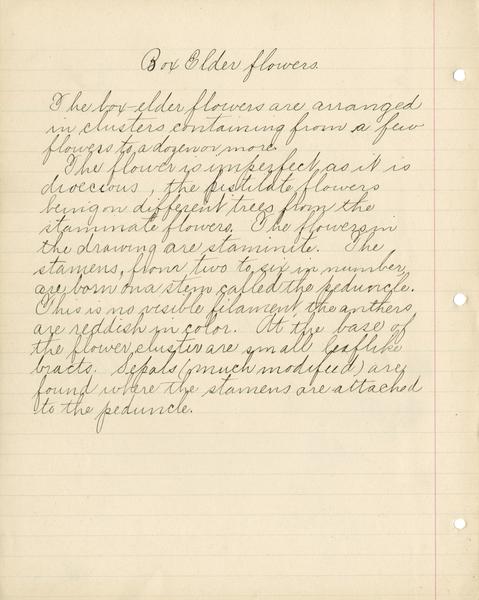 Box Elder flowers.
The box-elder flowers are arranged
in clusters containing from a few
flowers to a dozen or more.
The flower is imperfect as it is
dioecious, the pistilate flowers
being on different trees from the
staminate flowers. The flowers in
the drawing are staminite. The
stamens, from two to six in number,
are born on a stem called the peduncle.
This is no visible filament, the anthers
are reddish in color. At the base of
the flower cluster are small leaflike
bracts. Sepals (much modified) are
found where the stamens are attached
to the peduncle.